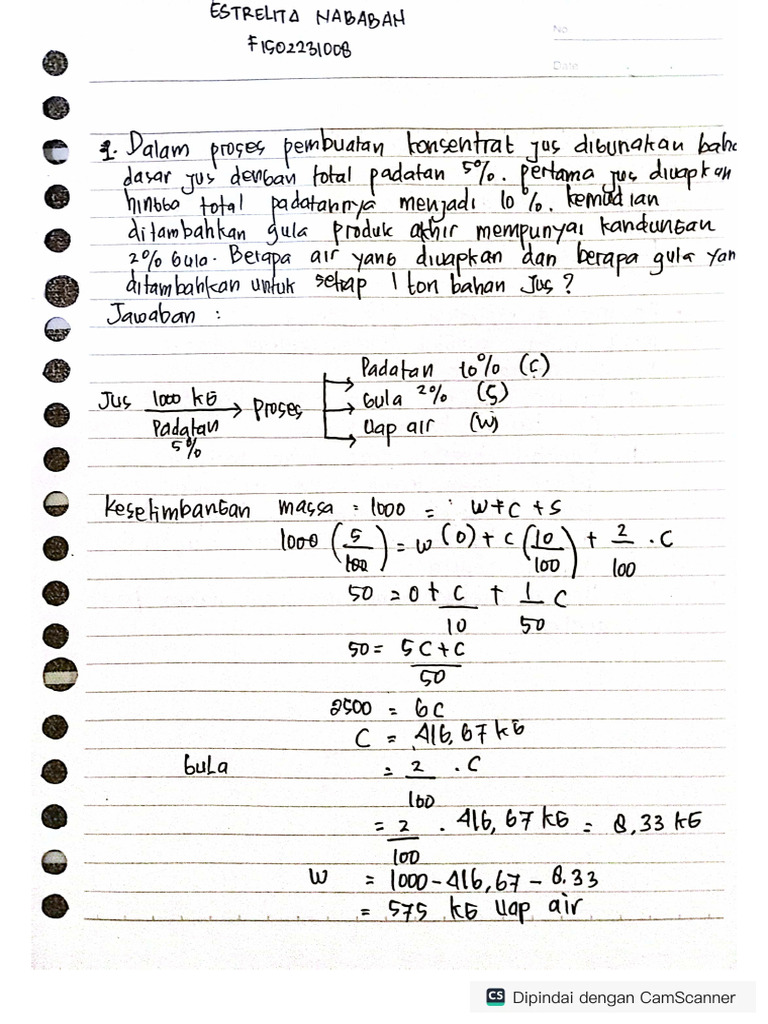 ESTRELITA NABABAN
F1G02231008
No
Date
1. Dalam proses pembuatan konsentrat jus digunakan baha
dasar jus dengan total padatan 5%. pertama jus diuapkan
hingga total padatannya menjadi 10%. kemudian
ditambahkan gula produk akhir mempunyai kandungan
2% gula. Berapa air yang diuapkan dan berapa gula yan
ditambahkan untuk setiap 1 ton bahan jus?
Jawaban :
Padatan 10% (C)
Jus 1000 kg Proses Gula 2% (S)
Padatan Uap air (W)
5%
Keseimbangan massa : 1000 = W+C+S
1000 (5/100) = W(0) + C (10/100) + 2/100 . C
50 = 0 + C/10 + 1/50 C
50 = 5C+C/50
2500 = 6C
C = 416,67 kg
Gula = 2/100 . C
= 2/100 . 416,67 kg = 8,33 kg
W = 1000 - 416,67 - 8.33
= 575 kg Uap air
CS Dipindai dengan CamScanner